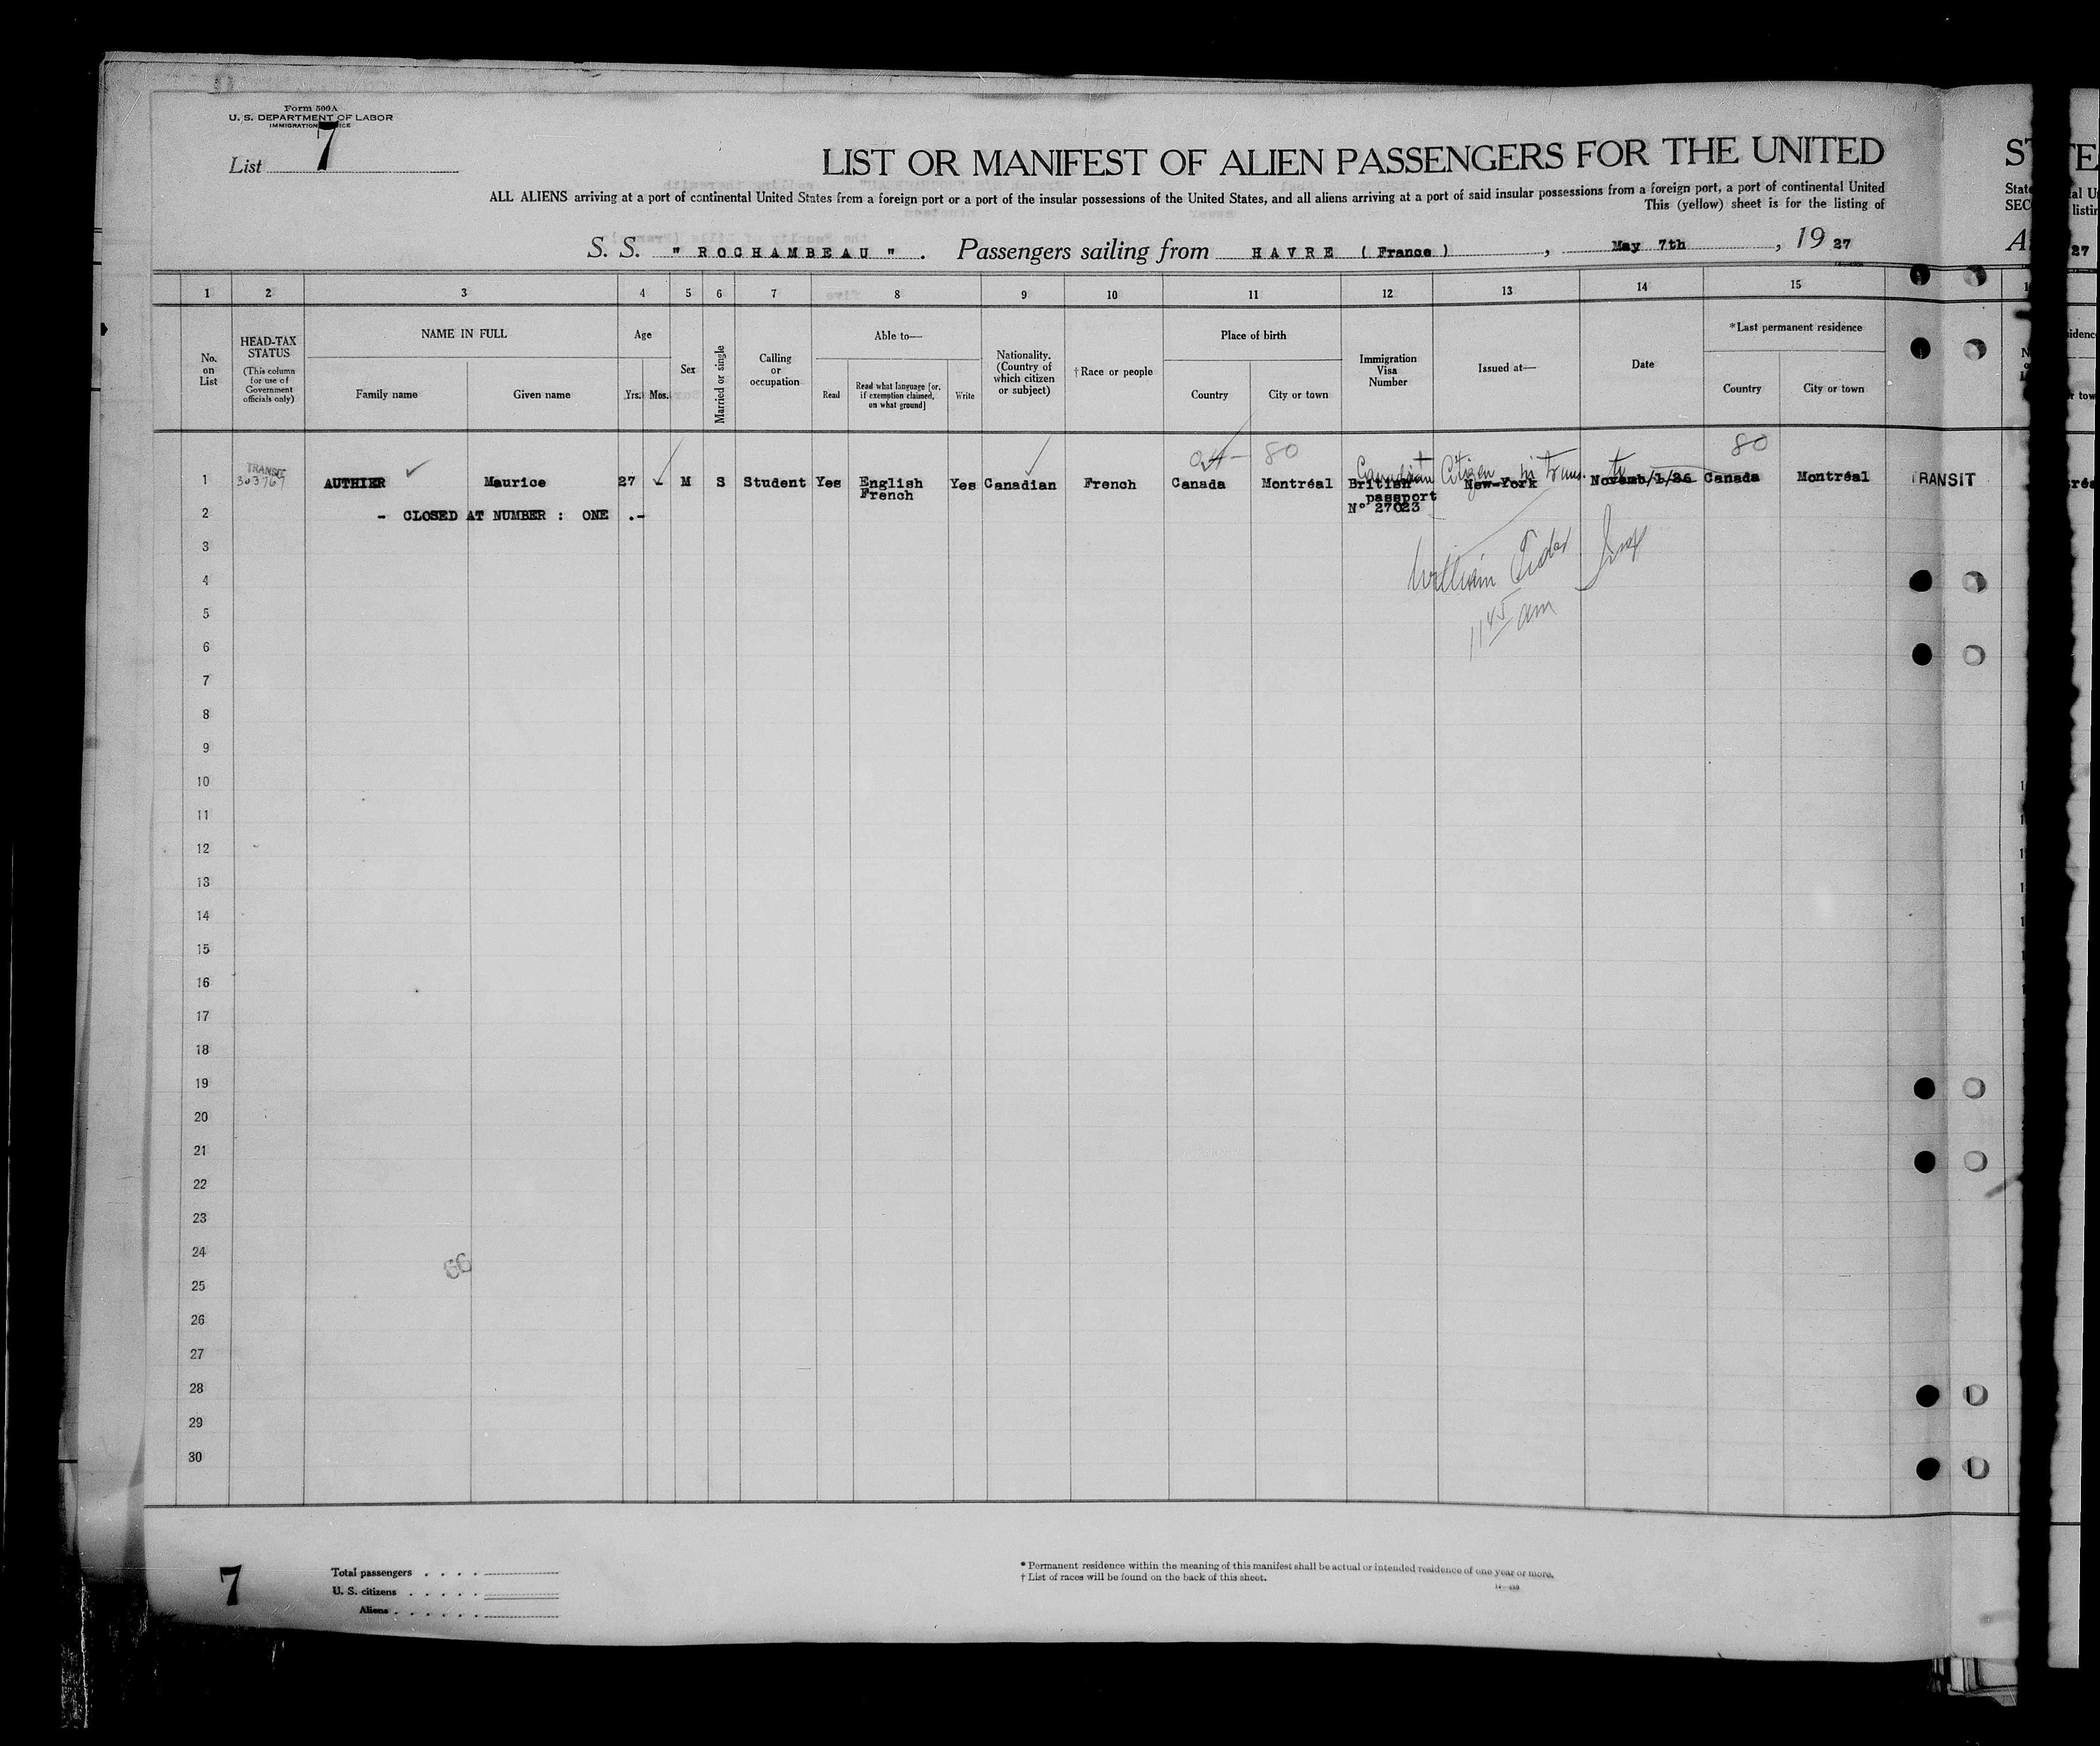 Form 500A
U. S. DEPARTMENT OF LABOR
IMMIGRATION
List 7
LIST OR MANIFEST OF ALIEN PASSENGERS FOR THE UNITED
ALL ALIENS arriving at a port of continental United States from a foreign port or a port of the insular possessions of the United States, and all aliens arriving at a port of said insular possessions from a foreign port, a port of continental United
This (yellow) sheet is for the listing of
S. S. " ROCHAMBEAU " . Passengers sailing from HAVRE ( France ) , May 7th , 19 27
1 2 3 4 5 6 7 8 9 10 11 12 13 14 15
No. on List
HEAD-TAX STATUS
(This column for use of Government officials only)
NAME IN FULL
Family name
Given name
Age
Yrs. Mos.
Sex
Married or single
Calling or occupation
Able to—
Read
Read what language [or, if exemption claimed, on what ground]
Write
Nationality. (Country of which citizen or subject)
†Race or people
Place of birth
Country
City or town
Immigration Visa Number
Issued at—
Date
*Last permanent residence
Country
City or town
80 80
Canadian Citizen in trans. to
1 TRANSIT 303767 AUTHIER Maurice 27 M S Student Yes English Yes Canadian French Canada Montréal British New-York Novemb/1/26 Canada Montréal TRANSIT
French passport
2 - CLOSED AT NUMBER : ONE .- N° 27023
3
4 William
5 11 45 am
6
7
8
9
10
11
12
13
14
15
16
17
18
19
20
21
22
23
24
66
25
26
27
28
29
30
7
Total passengers
U. S. citizens
Aliens
* Permanent residence within the meaning of this manifest shall be actual or intended residence of one year or more.
† List of races will be found on the back of this sheet.